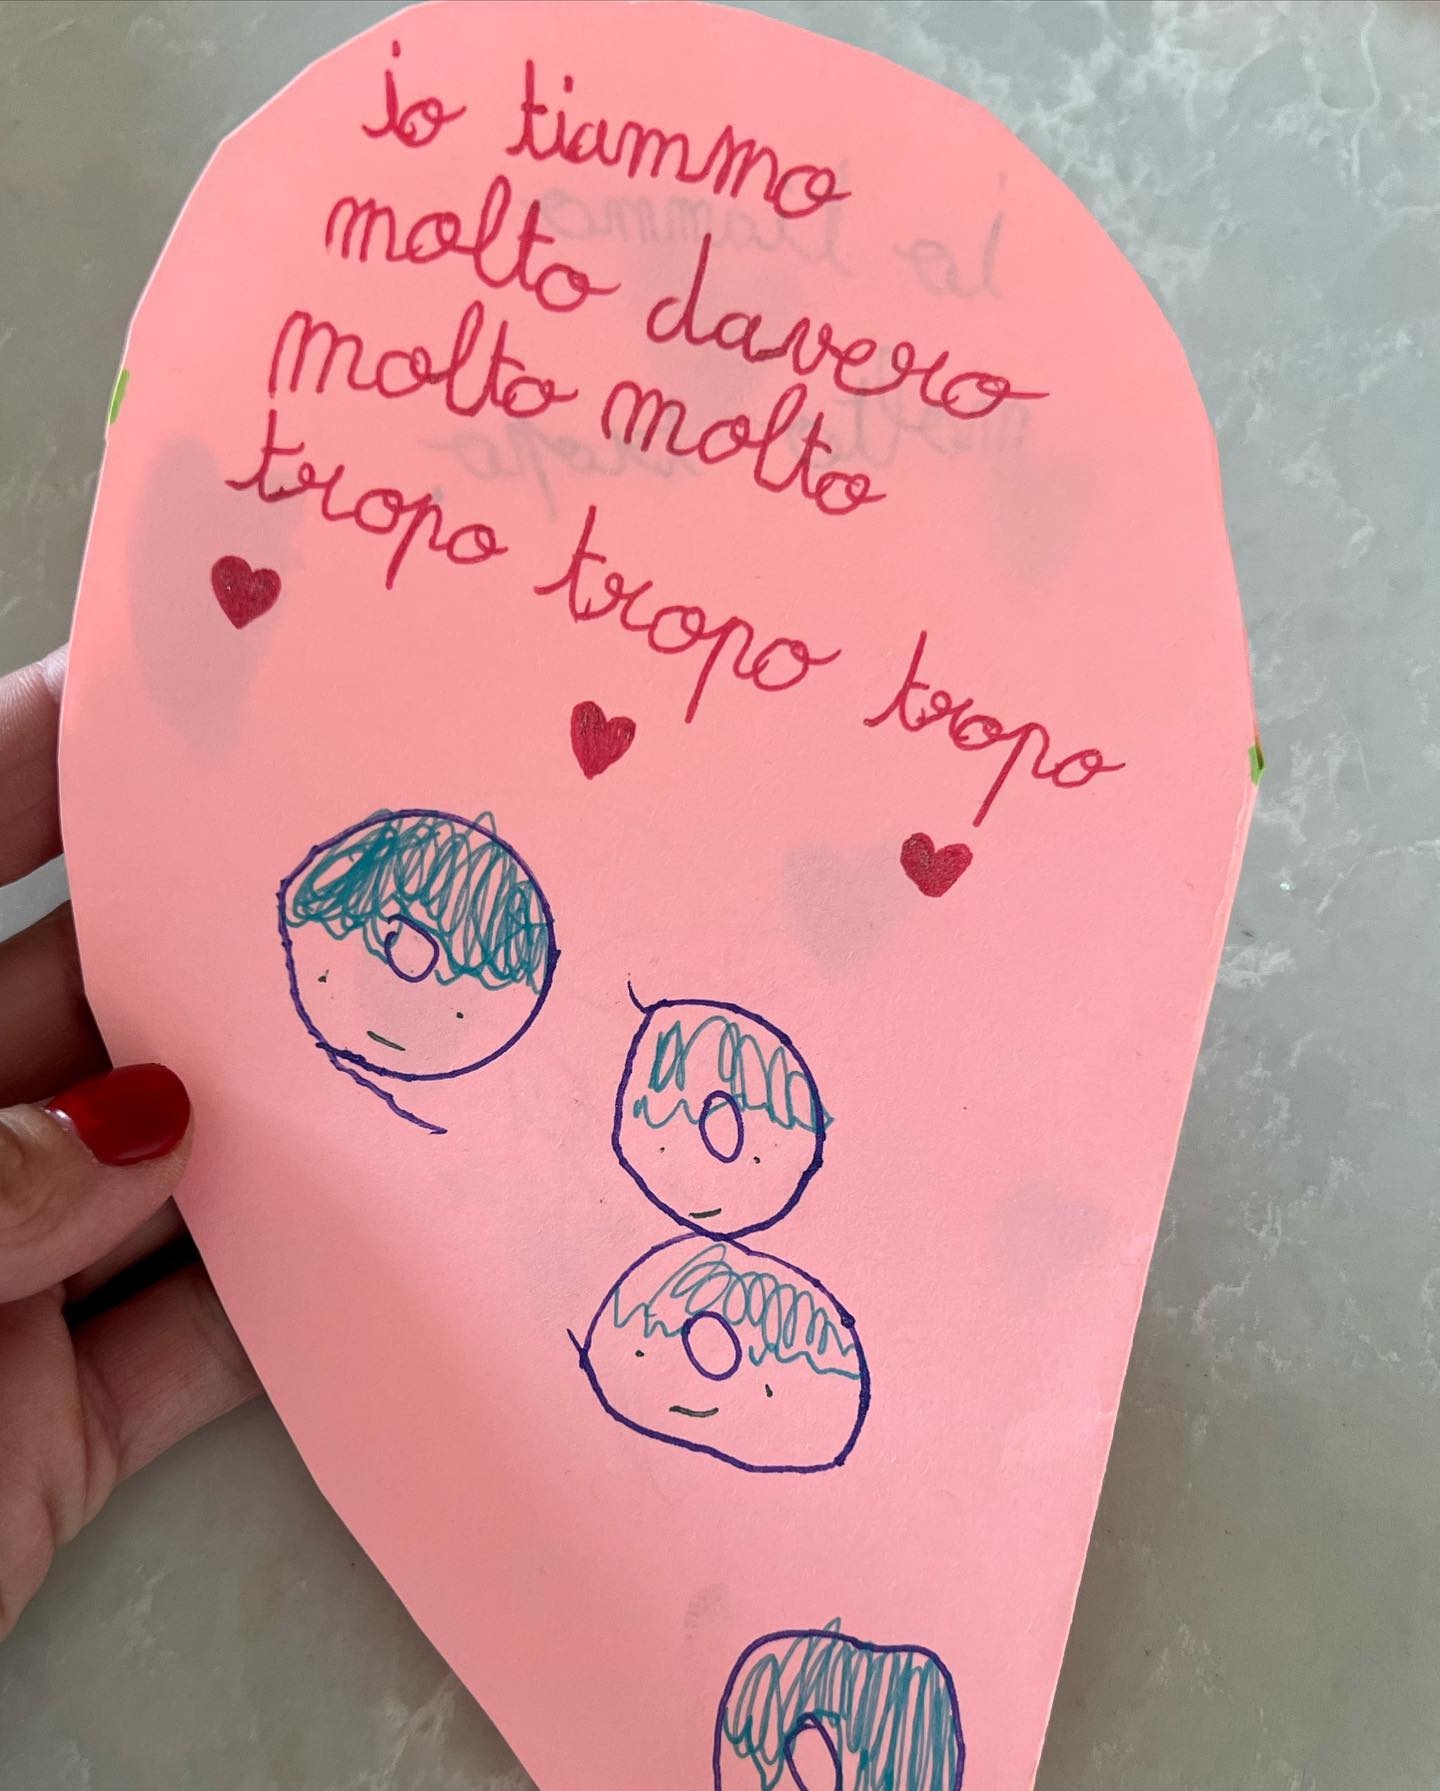 io tiammo
molto davero
molto molto
tropo tropo tropo